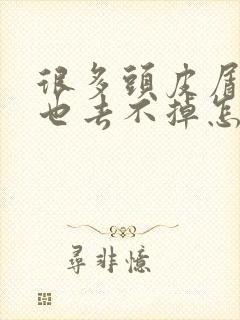 很多頭皮屑
也去不掉怎
尋非憶